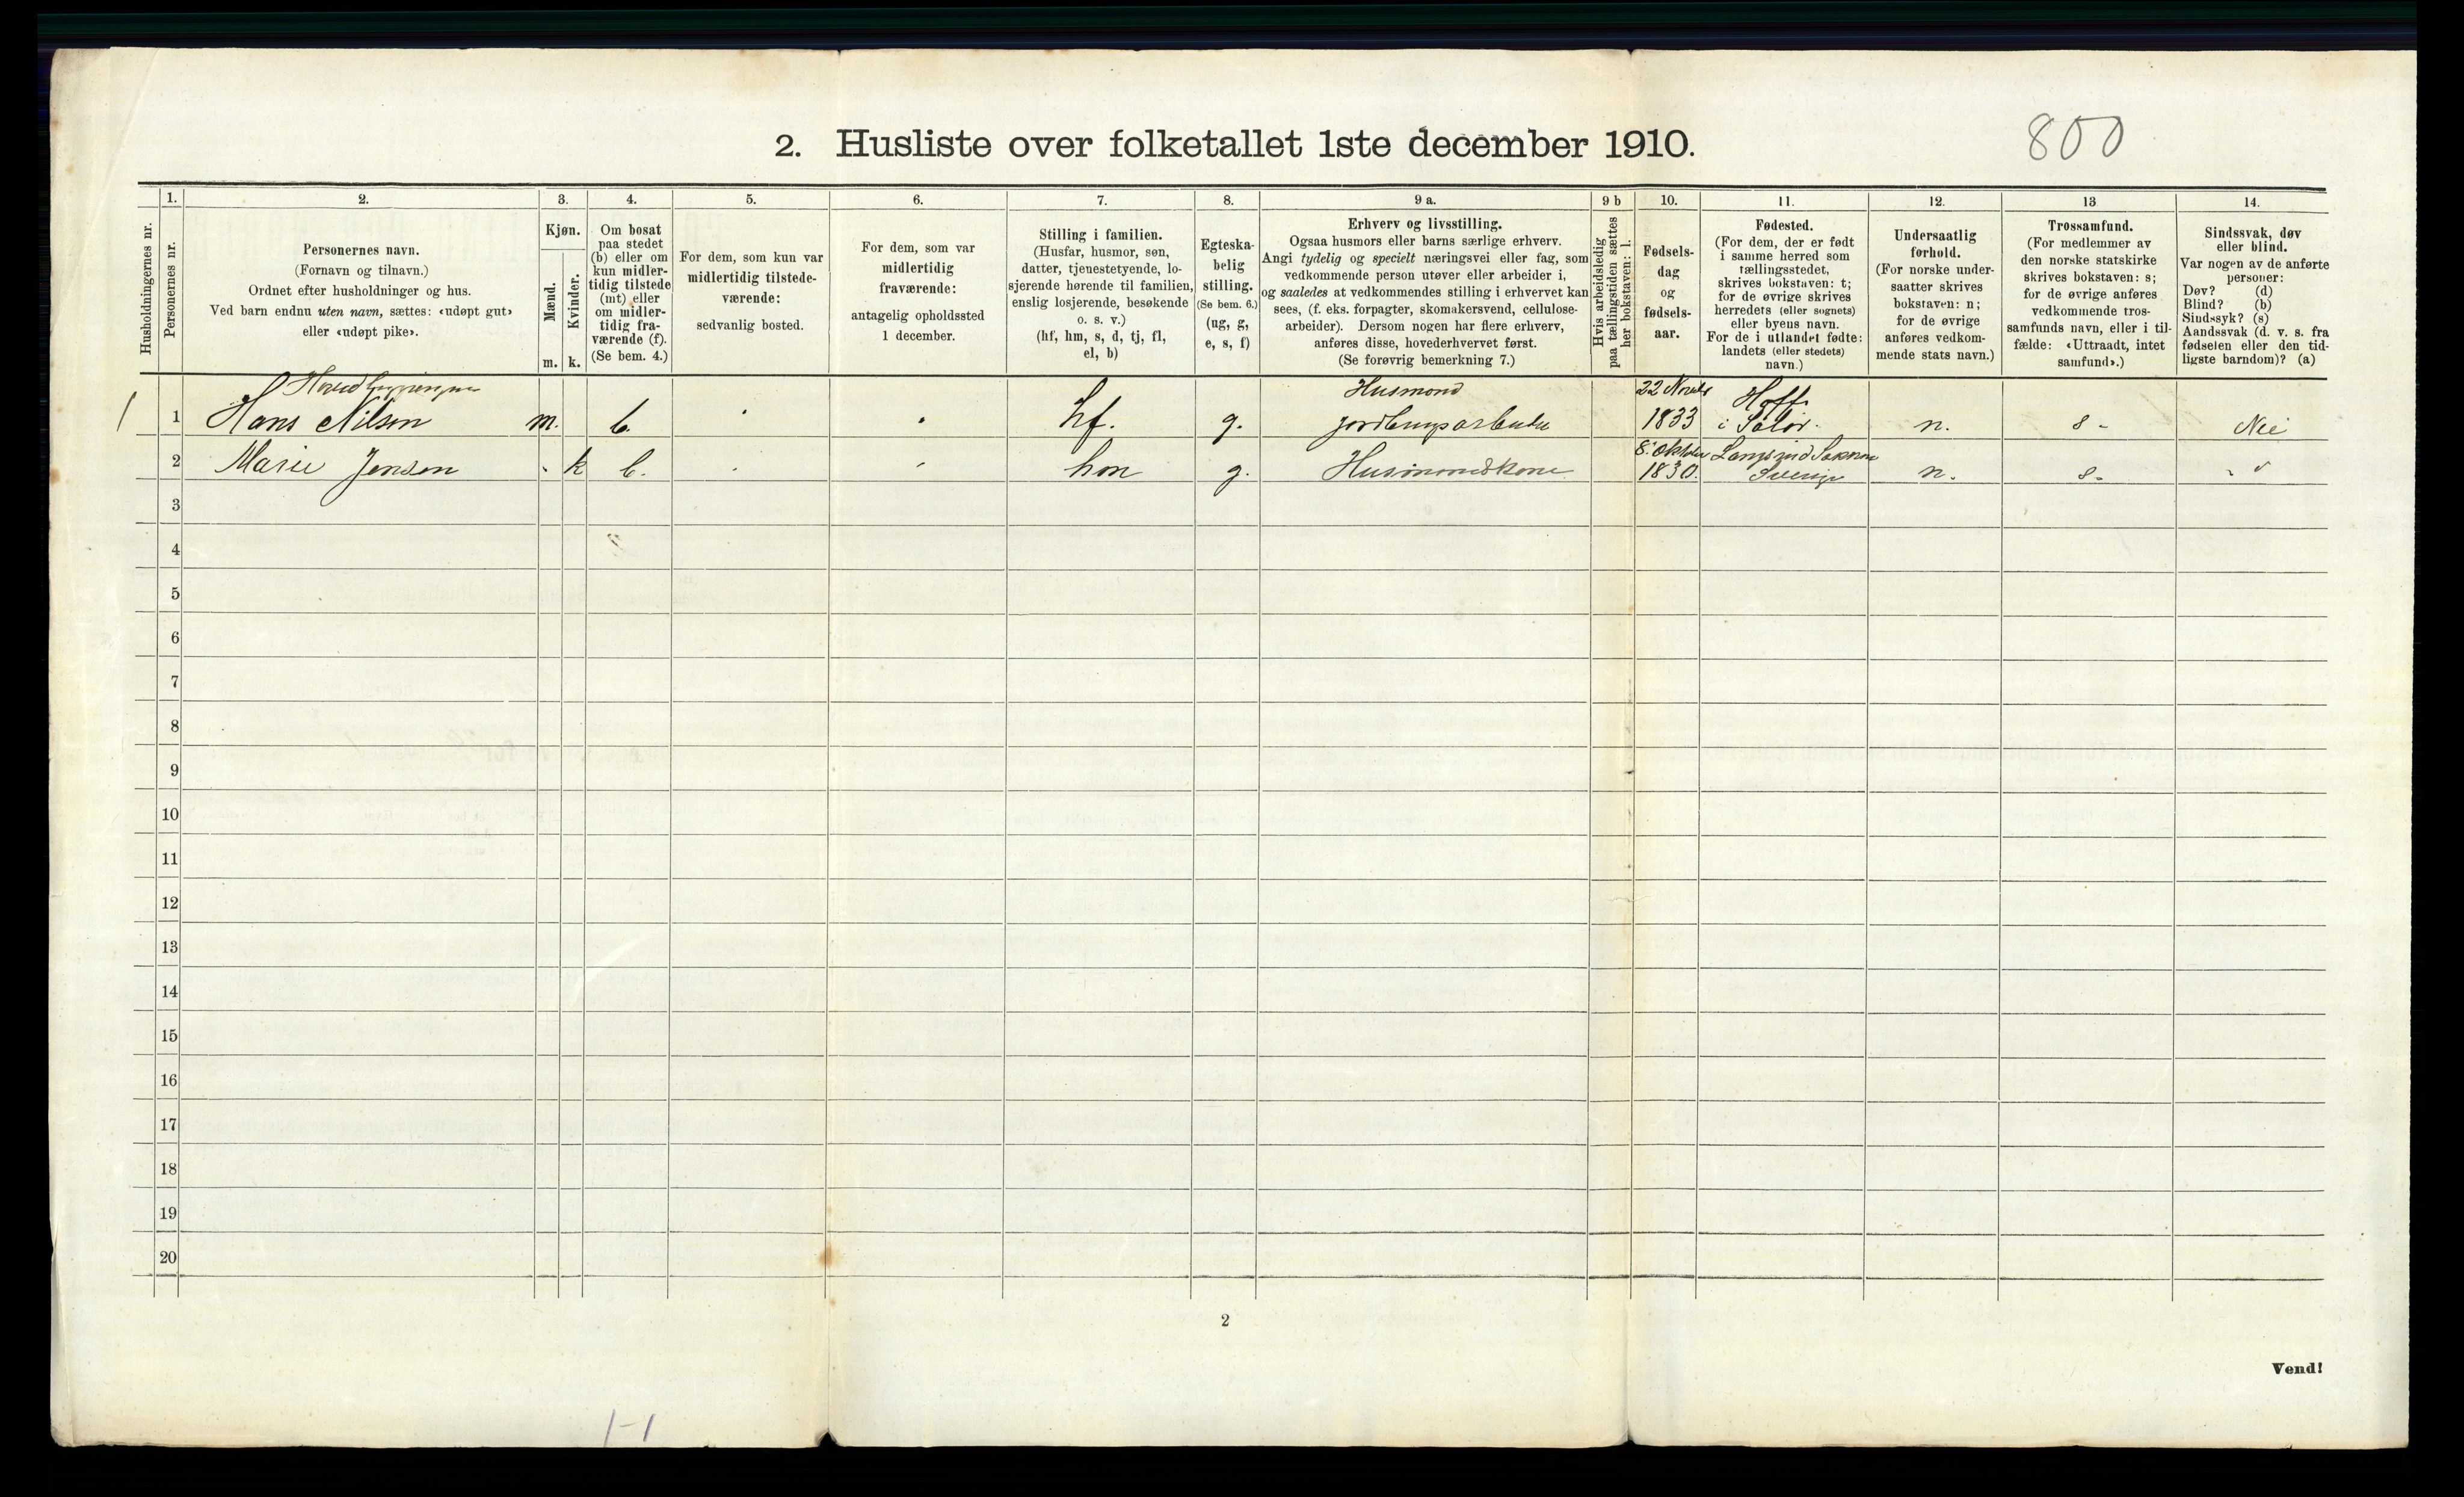 2. Husliste over folketallet 1ste december 1910.
800
Husholdningernes nr.
1.
Personernes nr.
2.
Personernes navn.
(Fornavn og tilnavn.)
Ordnet efter husholdninger og hus.
Ved barn endnu uten navn, sættes: «udøpt gut»
eller «udøpt pike».
3.
Kjøn.
Mænd.
m.
Kvinder.
k.
4.
Om bosat
paa stedet
(b) eller om
kun midler-
tidig tilstede
(mt) eller
om midler-
tidig fra-
værende (f).
(Se bem. 4.)
5.
For dem, som kun var
midlertidig tilstede-
værende:
sedvanlig bosted.
6.
For dem, som var
midlertidig
fraværende:
antagelig opholdssted
1 december.
7.
Stilling i familien.
(Husfar, husmor, søn,
datter, tjenestetyende, lo-
sjerende hørende til familien,
enslig losjerende, besøkende
o. s. v.)
(hf, hm, s, d, tj, fl,
el, b)
8.
Egteska-
belig
stilling.
(Se bem. 6.)
(ug, g,
e, s, f)
9 a.
Erhverv og livsstilling.
Ogsaa husmors eller barns særlige erhverv.
Angi tydelig og specielt næringsvei eller fag, som
vedkommende person utøver eller arbeider i,
og saaledes at vedkommendes stilling i erhvervet kan
sees, (f. eks. forpagter, skomakersvend, cellulose-
arbeider). Dersom nogen har flere erhverv,
anføres disse, hovederhvervet først.
(Se forøvrig bemerkning 7.)
9 b
Hvis arbeidsledig
paa tællingstiden sættes
her bokstaven: l.
10.
Fødsels-
dag
og
fødsels-
aar.
11.
Fødested.
(For dem, der er født
i samme herred som
tællingsstedet,
skrives bokstaven: t;
for de øvrige skrives
herredets (eller sognets)
eller byens navn.
For de i utlandet fødte:
landets (eller stedets)
navn.)
12.
Undersaatlig
forhold.
(For norske under-
saatter skrives
bokstaven: n;
for de øvrige
anføres vedkom-
mende stats navn.)
13
Trossamfund.
(For medlemmer av
den norske statskirke
skrives bokstaven: s;
for de øvrige anføres
vedkommende tros-
samfunds navn, eller i til-
fælde: «Uttraadt, intet
samfund».)
14.
Sindssvak, døv
eller blind.
Var nogen av de anførte
personer:
Døv? (d)
Blind? (b)
Sindssyk? (s)
Aandssvak (d. v. s. fra
fødselen eller den tid-
ligste barndom)? (a)
Husmand 22 Novbr Hoff
1 1 Hans Nilsen m. b. hf. g. jordbrugsarbeider 1833 i Solør. n. s. Nei
8. oktober
2 Marie Jensen k b. hm g. Husmandskone 1830. Sverige n. s.
3
4
5
6
7
8
9
10
11
12
13
14
15
16
17
18
19
20
2
Vend!
1-1